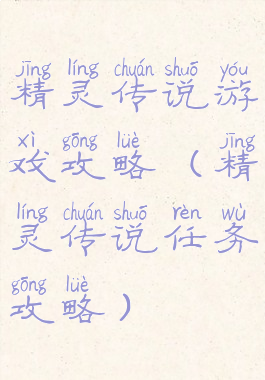 jīng líng chuán shuō yóu
精灵传说游
xì gōng lüè jīng
戏攻略（精
líng chuán shuō rèn wù
灵传说任务
gōng lüè
攻略）